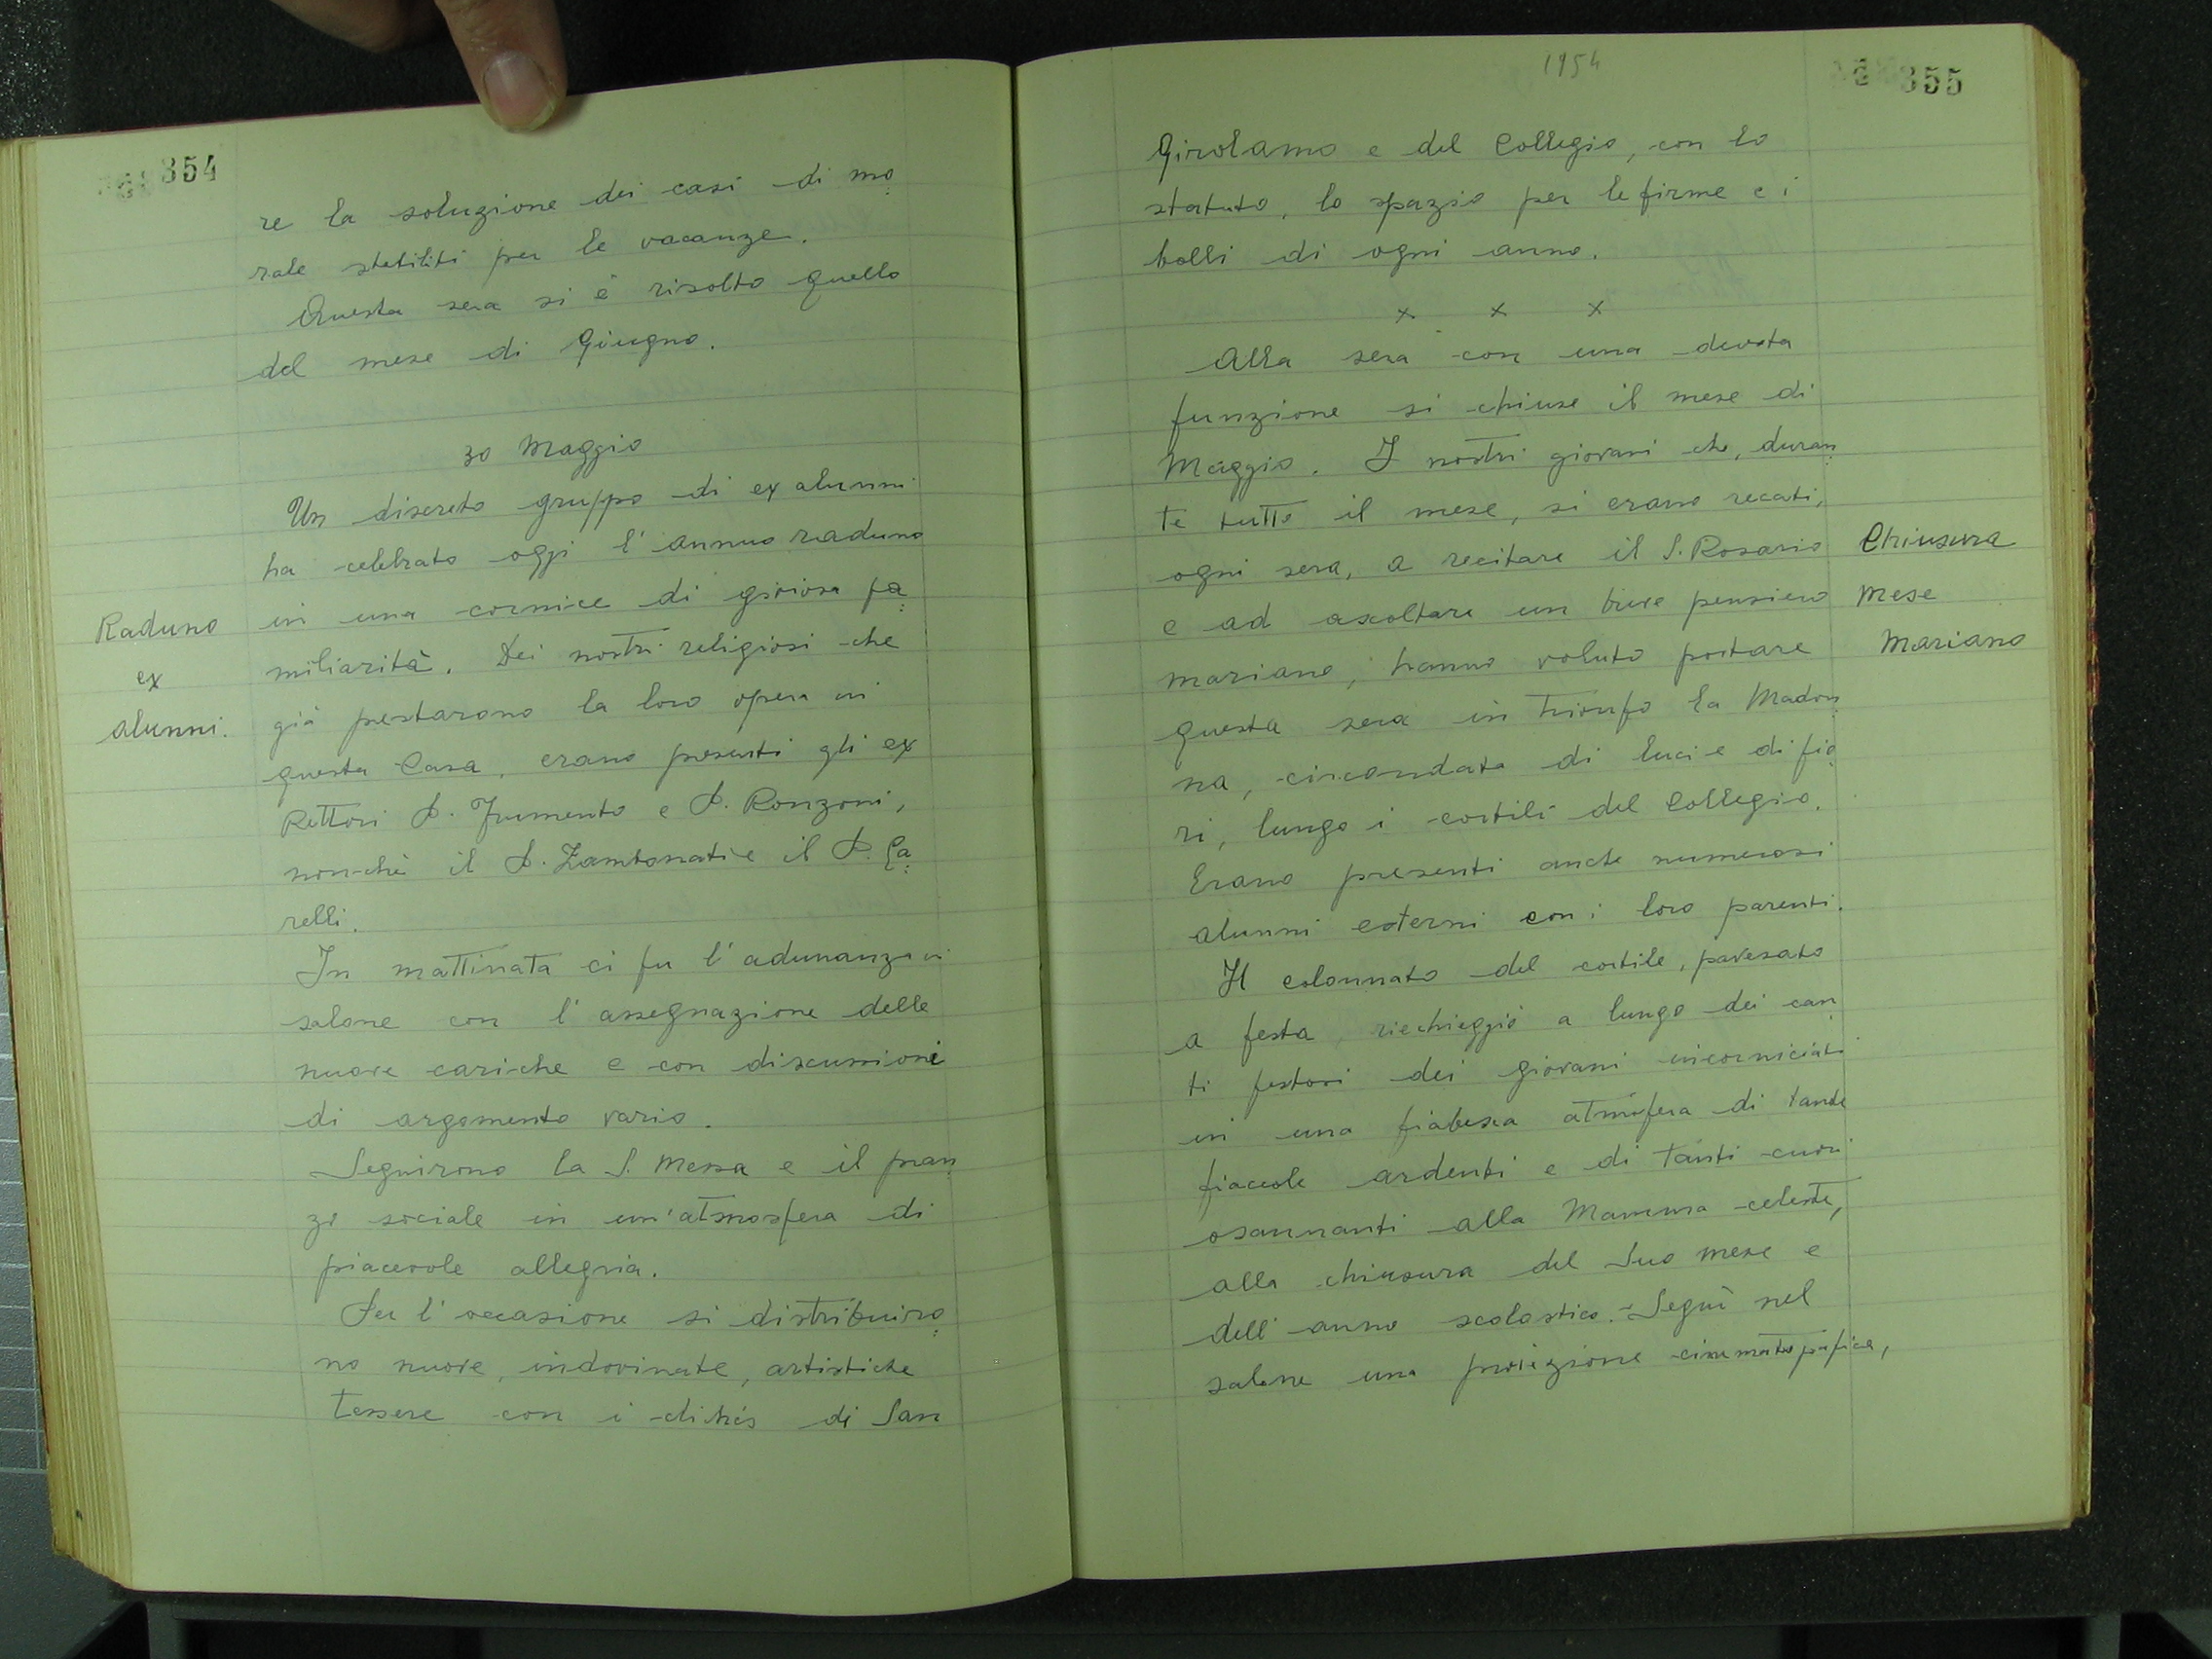 354
re la soluzione dei casi di mo
rale stabiliti per le vacanze.
Questa sera si è risolto quello
del mese di Giugno.
30 Maggio
Un discreto gruppo di ex alunni
ha celebrato oggi l'annuo raduno
in una cornice di gioiosa fa
miliarità. Dei nostri religiosi che
già prestarono la loro opera in
questa Casa, erano presenti gli ex
Rettori P. Frumento e P. Ronzoni,
nonchè il P. Zambonati e il P. Ca
relli.
In mattinata ci fu l'adunanza in
salone con l'assegnazione delle
nuove cariche e con discussioni
di argomento vario.
Seguirono la S. Messa e il pran
zo sociale in un'atmosfera di
piacevole allegria.
Per l'occasione si distribuiro
no nuove, indovinate, artistiche
tessere con i clichés di San
Raduno
ex
alunni.
1954
355
Girolamo e del Collegio, con lo
statuto, lo spazio per le firme e i
bolli di ogni anno.
x x x
Alla sera con una devota
funzione si chiuse il mese di
Maggio. I nostri giovani che, duran
te tutto il mese, si erano recati,
ogni sera, a recitare il S. Rosario
e ad ascoltare un breve pensiero
mariano, hanno voluto portare
questa sera in trionfo la Madon
na, circondata di luci e di fio
ri, lungo i cortili del Collegio.
Erano presenti anche numerosi
alunni esterni con i loro parenti.
Il colonnato del cortile, pavesato
a festa, riecheggiò a lungo dei can
ti festosi dei giovani incorniciati
in una fiabesca atmosfera di tante
fiaccole ardenti e di tanti cuori
osannanti alla Mamma celeste,
alla chiusura del Suo mese e
dell'anno scolastico. - Seguì nel
salone una proiezione cinematografica,
Chiusura
Mese
Mariano